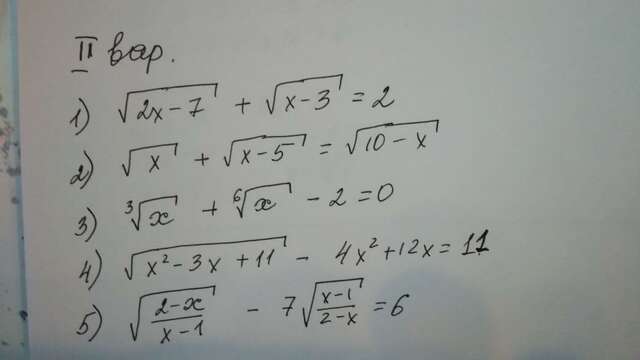 II вар.
1) √(2x-7) + √(x-3) = 2
2) √x + √(x-5) = √(10-x)
3) ∛x + ⁶√x - 2 = 0
4) √(x²-3x+11) - 4x²+12x = 11
5) √((2-x)/(x-1)) - 7√((x-1)/(2-x)) = 6